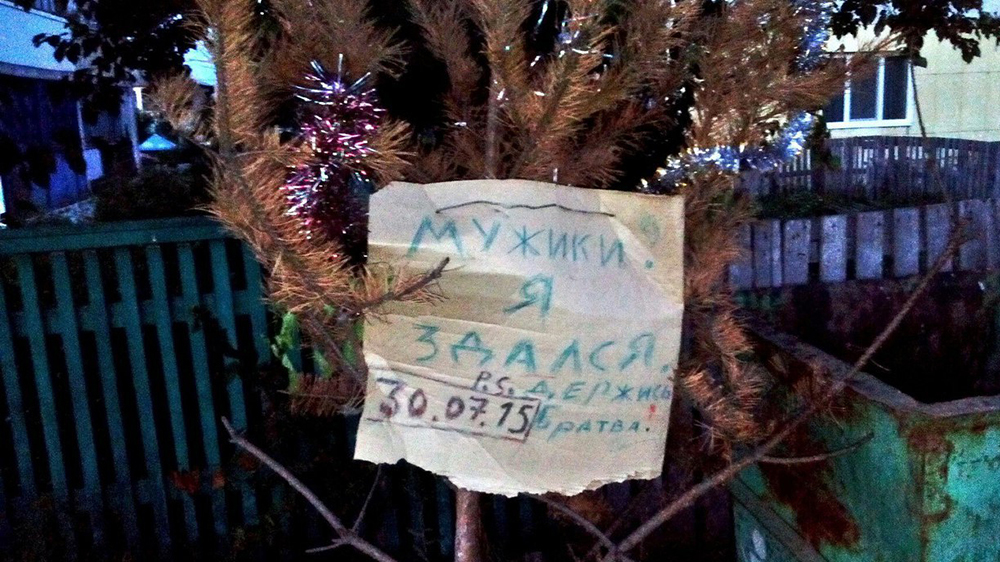 МУЖИКИ!
Я
ЗДАЛСЯ.
P.S. ДЕРЖИСЬ
БРАТВА.
30.07.15